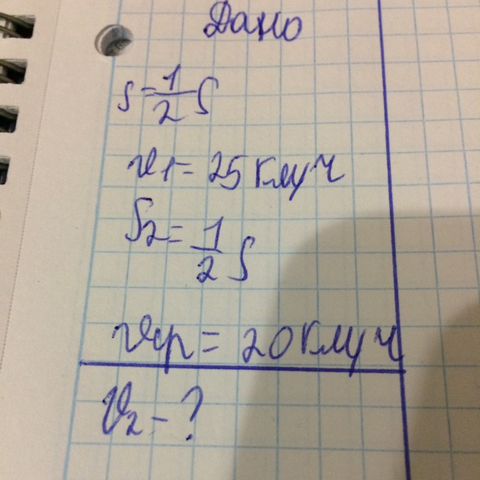 Дано
S=1/2 S
v1=25 км/ч
S2=1/2 S
vср=20 км/ч
v2-?